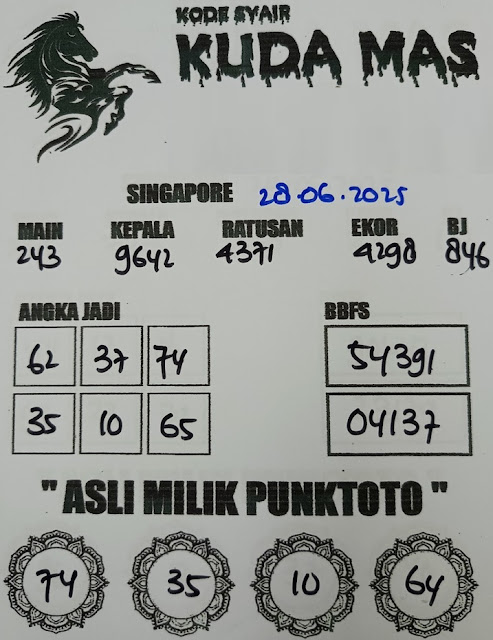 KODE SYAIR
KUDA MAS
SINGAPORE 28.06.2025
MAIN KEPALA RATUSAN EKOR BJ
243 9642 4371 4298 846
ANGKA JADI BBFS
62 37 74 54391
35 10 65 04137
" ASLI MILIK PUNKTOTO "
74 35 10 64